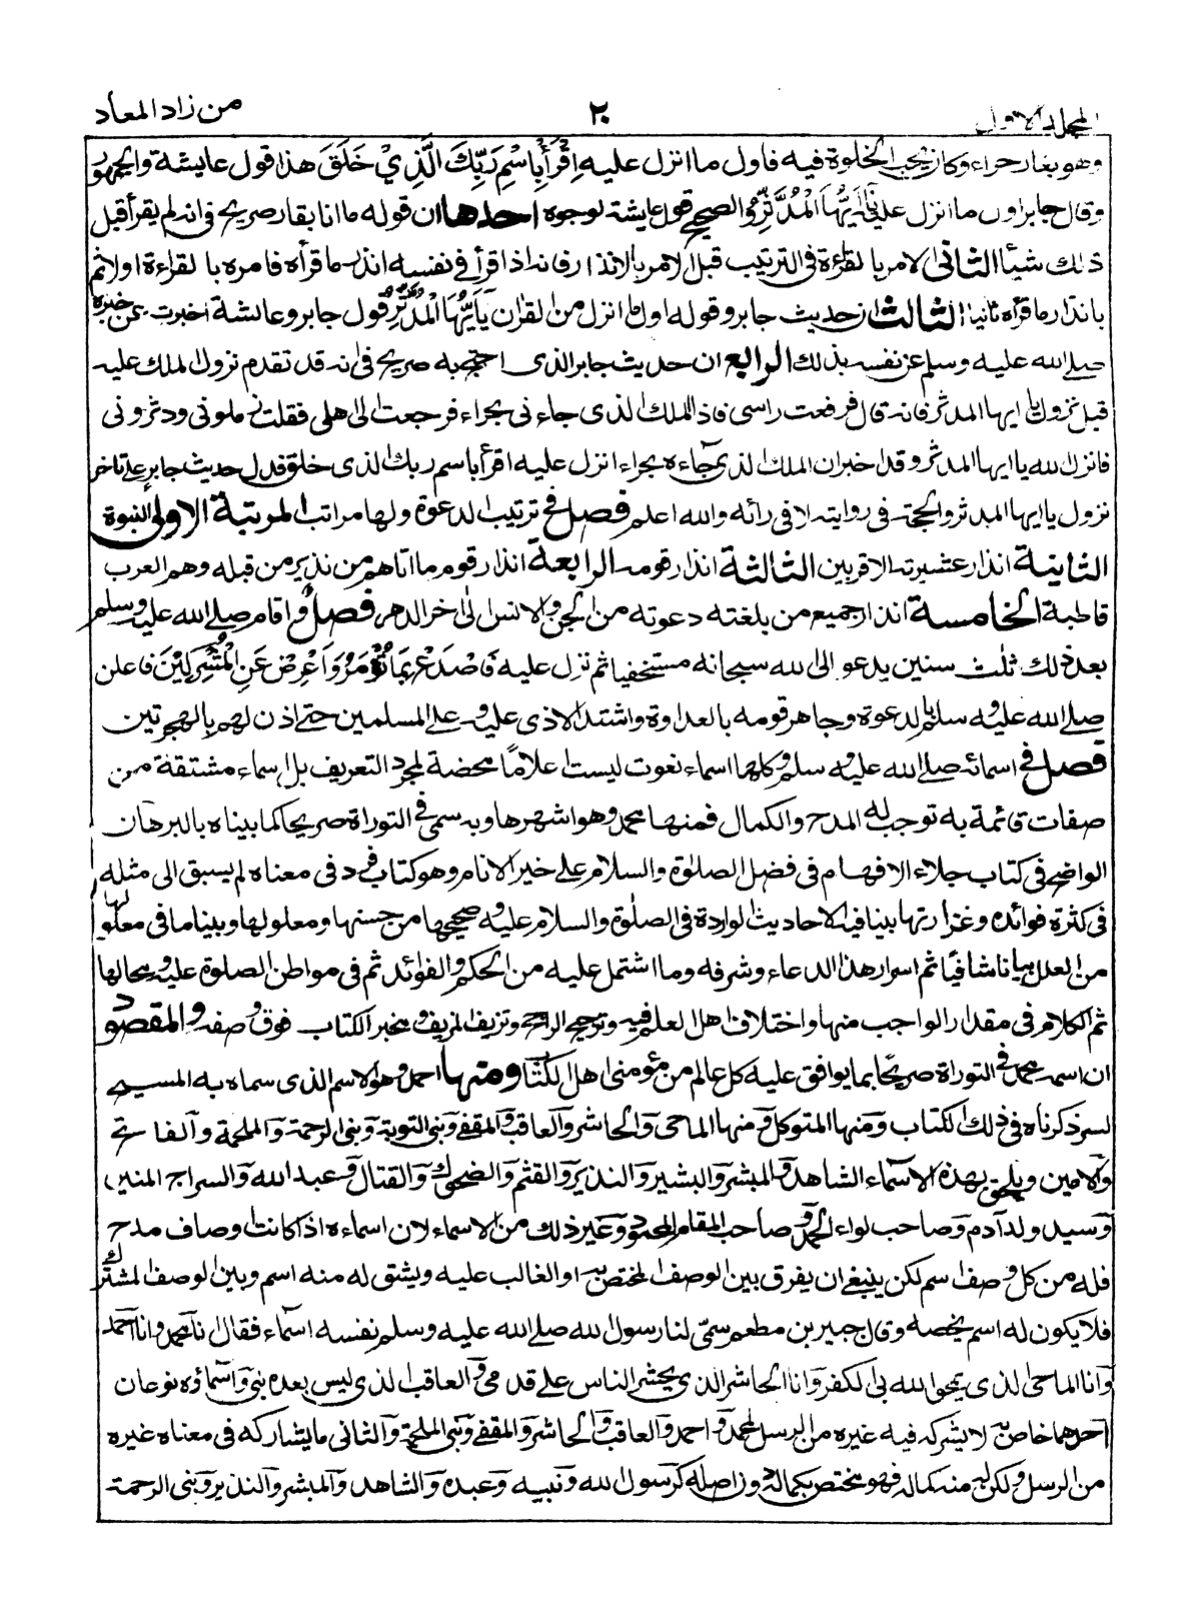 المجلد الاول
٢٠
من زاد المعاد
وهو بغار حراء وكان يحب الخلوة فيه فاول ما انزل عليه اِقْرَأْ بِاسْمِ رَبِّكَ الَّذِيْ خَلَقَ هذا قول عايشة والجمهور
وقال جابر اول ما انزل عليه يٰاَيُّهَا الْمُدَّثِّرُ والصحيح قول عايشة لوجوه احدها ان قوله ما انا بقارئ صريح فى انه لم يقرأ قبل
ذلك شيأ الثانى الامر بالقراءة فى الترتيب قبل الامر بالانذار فانه اذا قرأ فى نفسه انذر ما قرأه فامره بالقراءة اولا ثم
بانذار ما قرأه ثانيا الثالث ان حديث جابر وقوله اول ما انزل من القران يٰاَيُّهَا الْمُدَّثِّرُ قول جابر وعايشة اخبرت عن خبره
صلے الله عليه وسلم عن نفسه بذلك الرابع ان حديث جابر الذى احتج به صريح فى انه قد تقدم نزول الملك عليه
قبل نزول يا ايها المدثر فانه قال فرفعت راسى فاذا الملك الذى جاءنى بحراء فرجعت الى اهلى فقلت زملونى ودثرونى
فانزل الله يا ايها المدثر وقد اخبر ان الملك الذى جاءه بحراء انزل عليه اقرأ باسم ربك الذى خلق فدل حديث جابر على تاخر
نزول يا ايها المدثر والحجة فى روايته لا فى رائه والله اعلم فصل فى ترتيب الدعوة ولها مراتب المرتبة الاولى النبوة
الثانية انذار عشيرته الاقربين الثالثة انذار قومه الرابعة انذار قوم ما اتاهم من نذير من قبله وهم العرب
قاطبة الخامسة انذار جميع من بلغته دعوته من الجن والانس الى اخر الدهر فصل واقام صلے الله عليه وسلم
بعد ذلك ثلث سنين يدعو الى الله سبحانه مستخفيا ثم نزل عليه فَاصْدَعْ بِمَا تُؤْمَرُ وَاَعْرِضْ عَنِ الْمُشْرِكِيْنَ فاعلن
صلے الله عليه وسلم بالدعوة وجاهر قومه بالعداوة واشتد الاذى عليه وعلے المسلمين حتے اذن لهم بالهجرتين
فصل فى اسمائه صلے الله عليه وسلم وكلها اسماء نعوت ليست اعلامًا محضة لمجرد التعريف بل اسماء مشتقة من
صفات قائمة به توجب له المدح والكمال فمنها محمد وهو اشهرها وبه سمى فى التوراة صريحا كما بيناه بالبرهان
الواضح فى كتاب جلاء الافهام فى فضل الصلوٰة والسلام على خير الانام وهو كتاب فرد فى معناه لم يسبق الى مثله
فى كثرة فوائده وغزارتها بينا فيه الاحاديث الواردة فى الصلوٰة والسلام عليه وصحيحها من حسنها ومعلولها وبينا ما فى معلولها
من العلل بيانا شافيًا ثم اسرار هذا الدعاء وشرفه وما اشتمل عليه من الحكم والفوائد ثم فى مواطن الصلوة عليه ومحالها
ثم الكلام فى مقدار الواجب منها واختلاف اهل العلم فيه وترجيح الراجح وتزييف المزيف ومخبر الكتاب فوق وصفه والمقصود
ان اسمه محمد فى التوراة صريحًا بما يوافق عليه كل عالم من مؤمنى اهل الكتاب ومنها احمد وهو الاسم الذى سماه به المسيح
لسر ذكرناه فى ذلك الكتاب ومنها المتوكل ومنها الماحى والحاشر والعاقب والمقفے ونبى التوبة ونبى الرحمة والملحمة والفاتح
والامين ويلحق بهذه الاسماء الشاهد والمبشر والبشير والنذير والقثم والضحوك والقتال وعبد الله والسراج المنير
وسيد ولد آدم وصاحب لواء الحمد وصاحب المقام المحمود وغير ذلك من الاسماء لان اسماءه اذا كانت اوصاف مدح
فله من كل وصف اسم لكن ينبغى ان يفرق بين الوصف المختص به او الغالب عليه ويشتق له منه اسم وبين الوصف المشترك
فلا يكون له اسم يخصه وقال جبير بن مطعم سمّى لنا رسول الله صلے الله عليه وسلم نفسه اسماء فقال انا محمد وانا احمد
وانا الماحى الذى يمحوا الله بى الكفر وانا الحاشر الذى يحشر الناس على قدمى والعاقب الذى ليس بعده نبى واسماؤه نوعان
احدهما خاص به لا يشركه فيه غيره من الرسل كمحمد واحمد والعاقب والحاشر والمقفے ونبى الملحمة والثانى ما يشاركه فى معناه غيره
من الرسل ولكن له منه كماله فهو مختص بكماله دون اصله كرسول الله ونبيه وعبده والشاهد والمبشر والنذير ونبى الرحمة